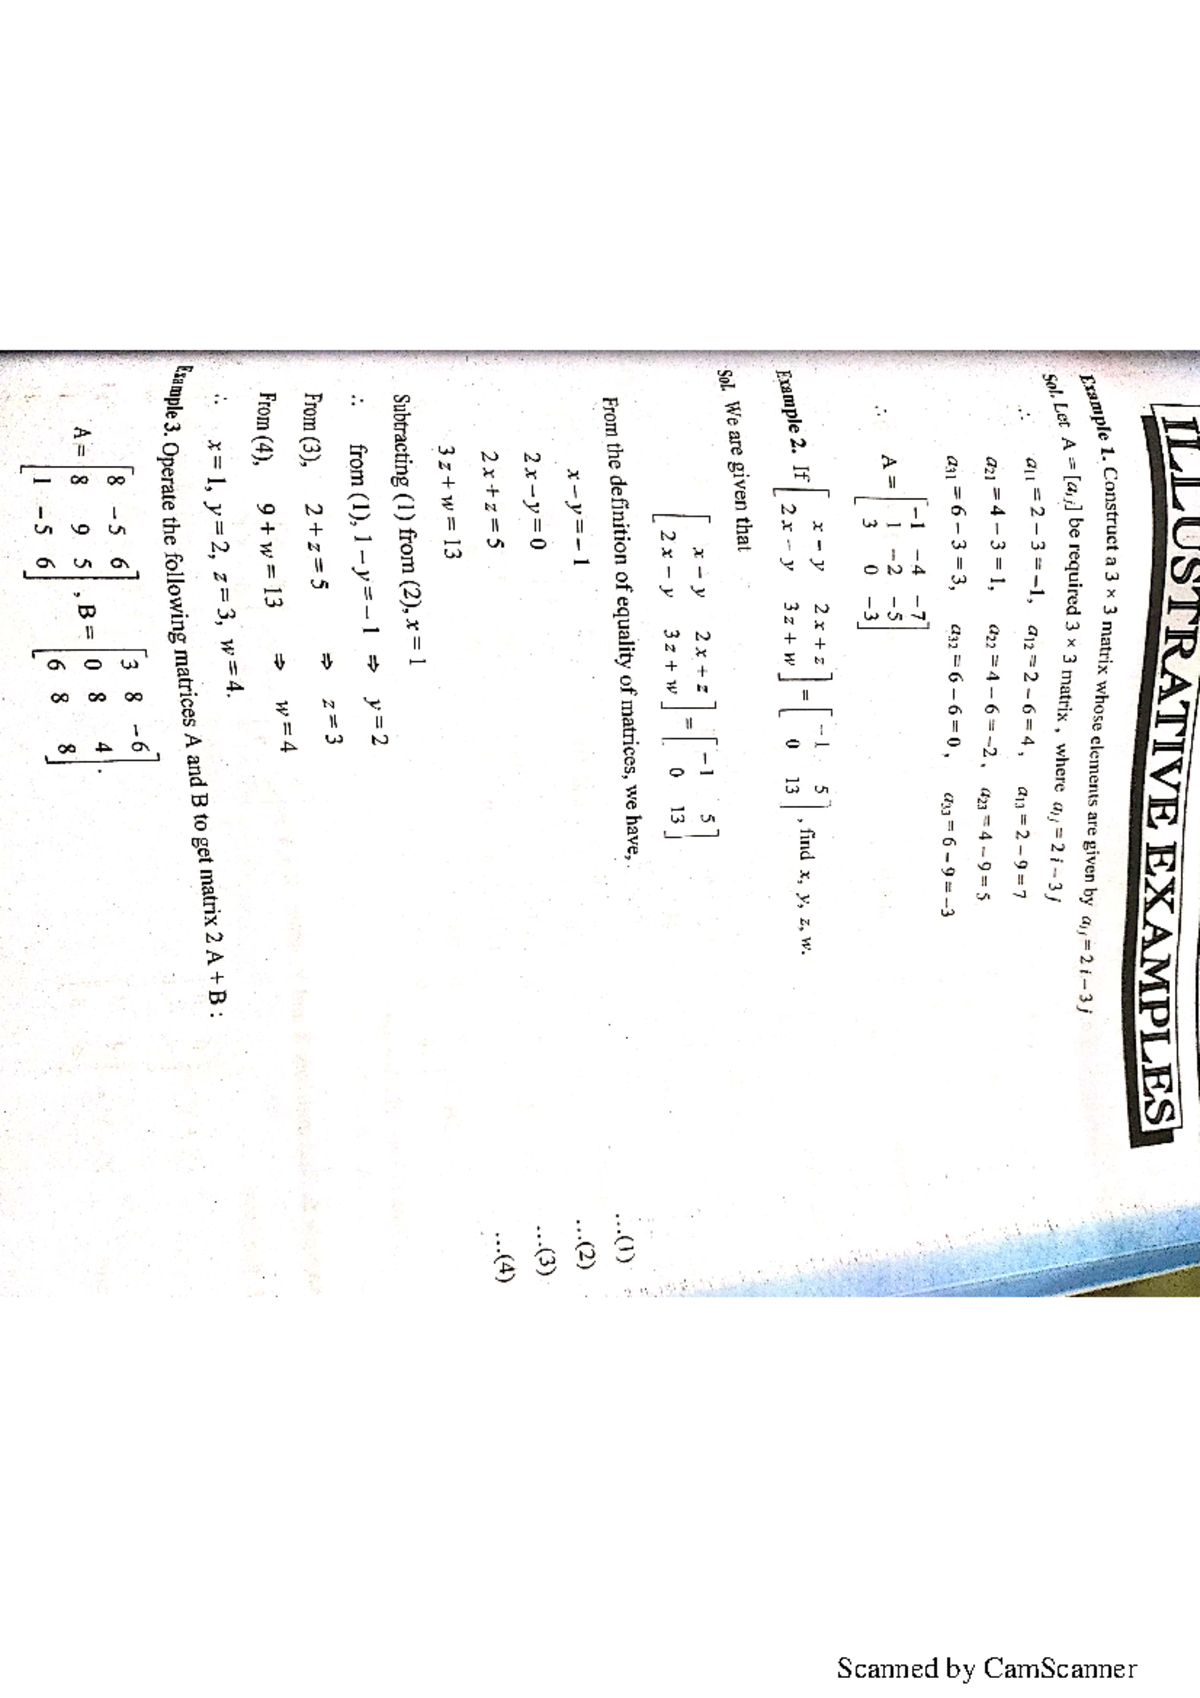 ILLUSTRATIVE EXAMPLES
Example 1. Construct a 3 × 3 matrix whose elements are given by a_ij = 2 i – 3 j
Sol. Let A = [a_ij] be required 3 × 3 matrix , where a_ij = 2 i – 3 j
∴ a11 = 2 – 3 = –1, a12 = 2 – 6 = 4, a13 = 2 – 9 = 7
a21 = 4 – 3 = 1, a22 = 4 – 6 = –2, a23 = 4 – 9 = 5
a31 = 6 – 3 = 3, a32 = 6 – 6 = 0, a33 = 6 – 9 = –3
∴ A = [ –1 –4 –7
1 –2 –5
3 0 –3 ]
Example 2. If [ x – y 2 x + z
2 x – y 3 z + w ] = [ –1 5
0 13 ] , find x, y, z, w.
Sol. We are given that
[ x – y 2 x + z
2 x – y 3 z + w ] = [ –1 5
0 13 ]
From the definition of equality of matrices, we have,
x – y = – 1 ...(1)
2 x – y = 0 ...(2)
2 x + z = 5 ...(3)
3 z + w = 13 ...(4)
Subtracting (1) from (2), x = 1
∴ from (1), 1 – y = – 1 ⇒ y = 2
From (3), 2 + z = 5 ⇒ z = 3
From (4), 9 + w = 13 ⇒ w = 4
∴ x = 1, y = 2, z = 3, w = 4.
Example 3. Operate the following matrices A and B to get matrix 2 A + B :
A = [ 8 –5 6
8 9 5
1 –5 6 ] , B = [ 3 8 –6
0 8 4
6 8 8 ] .
Scanned by CamScanner